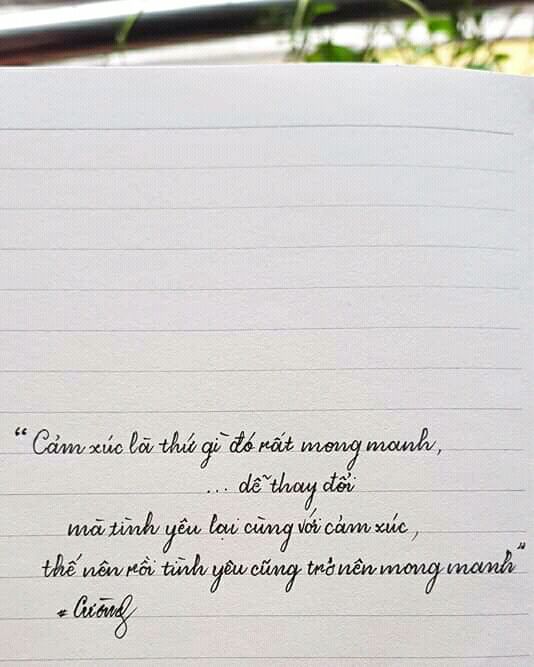 “Cảm xúc là thứ gì đó rất mong manh,
... dễ thay đổi
mà tình yêu lại cùng với cảm xúc,
thế nên rồi tình yêu cũng trở nên mong manh”
# Cường